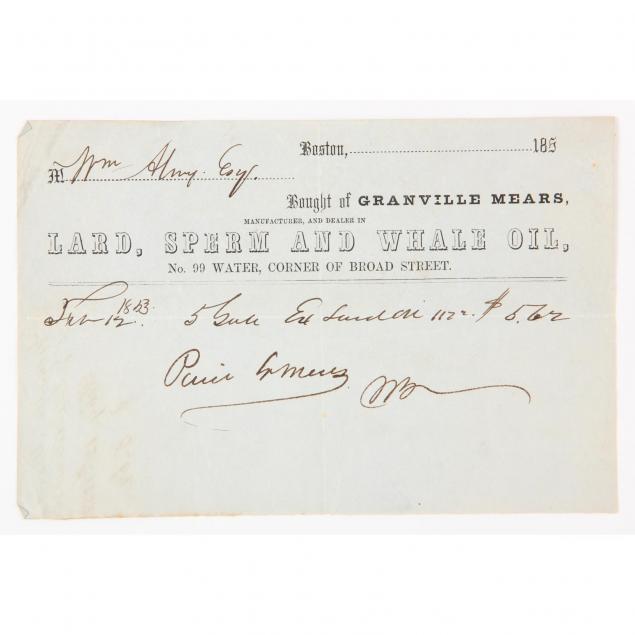 Boston, 185
Mr Wm Almy. Esq.
Bought of GRANVILLE MEARS,
MANUFACTURER, AND DEALER IN
LARD, SPERM AND WHALE OIL,
No. 99 WATER, CORNER OF BROAD STREET.
1853
Feb 12. 5 Gall Ex Lard Oil 112½ $5.62
G Mears